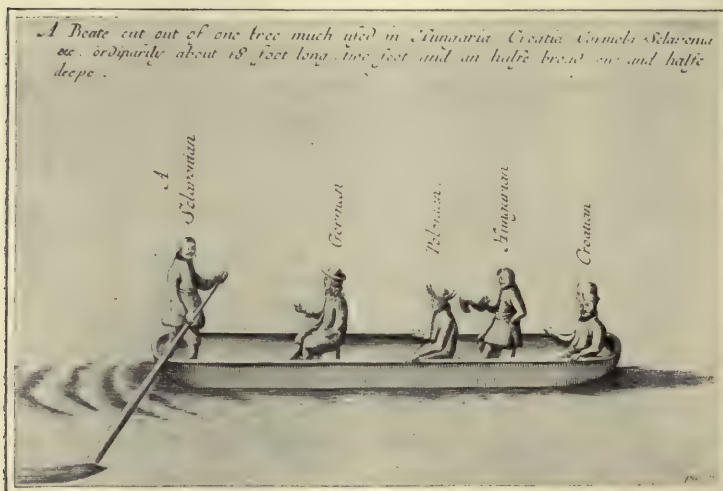 A Boate cut out of one tree much used in Hungaria Croatia Sclavonia
&c. ordinarily about 18 foot long two foot and an halfe broad and halfe
deepe.
A
Sclavonian
German
Hungarian
Croatian